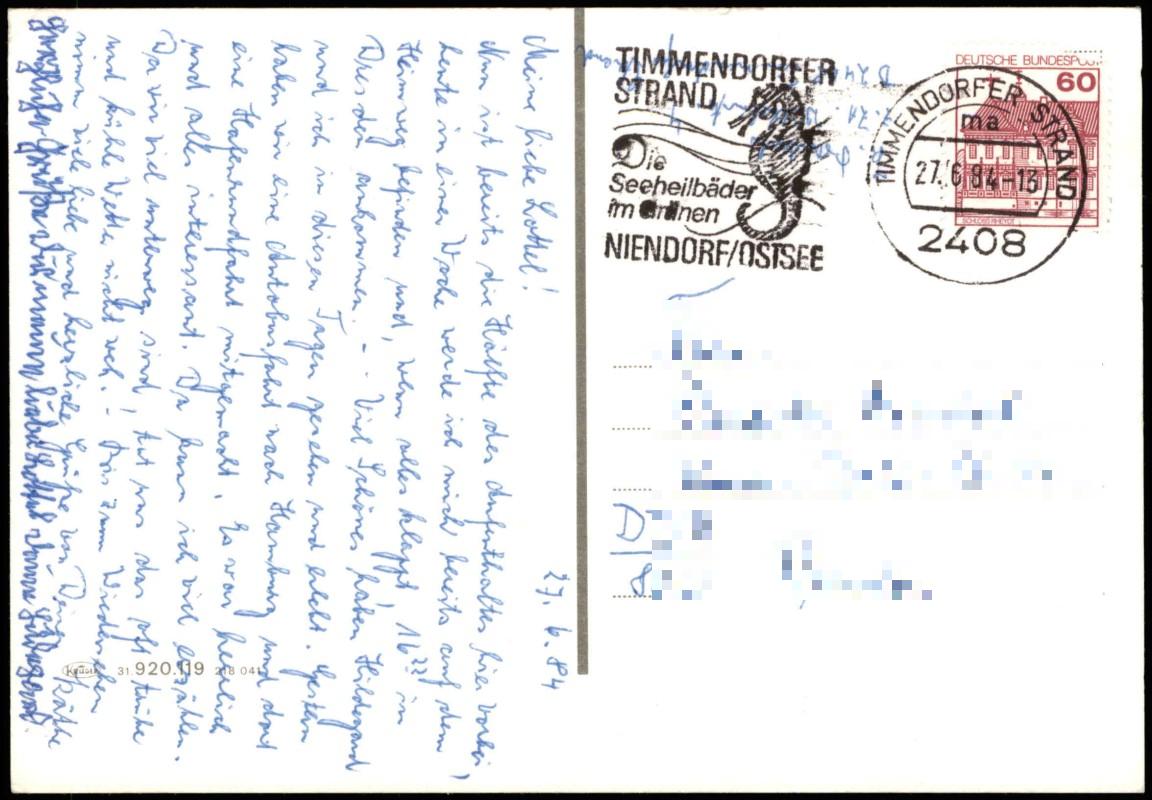 27. 6. 84
Meine liebe Lottel!
Nun ist bereits die Hälfte des Aufenthaltes hier vorbei,
heute in einer Woche werde ich mich bereits auf dem
Heimweg befinden und, wenn alles klappt, 16²² in
Dresden ankommen. - Viel Schönes haben Hildegard
und ich in diesen Tagen gesehen und erlebt. Gestern
haben wir eine Autobusfahrt nach Hamburg und dort
eine Hafenrundfahrt mitgemacht. Es war herrlich
und alles interessant. Da kann ich viel erzählen.
Da wir viel unterwegs sind, tut uns das oft trübe
und kühle Wetter nicht weh. - Bis zum Wiedersehen
nimm viele liebe und herzliche Grüße von Deiner Käthe
liebe Lottel Deine Hildegard
Kruger 31.920.119 218 041
TIMMENDORFER
STRAND
Die
Seeheilbäder
im Grünen
NIENDORF/OSTSEE
DEUTSCHE BUNDESPOST
60
TIMMENDORFER STRAND
ma
27.6.84-13
2408
D
8